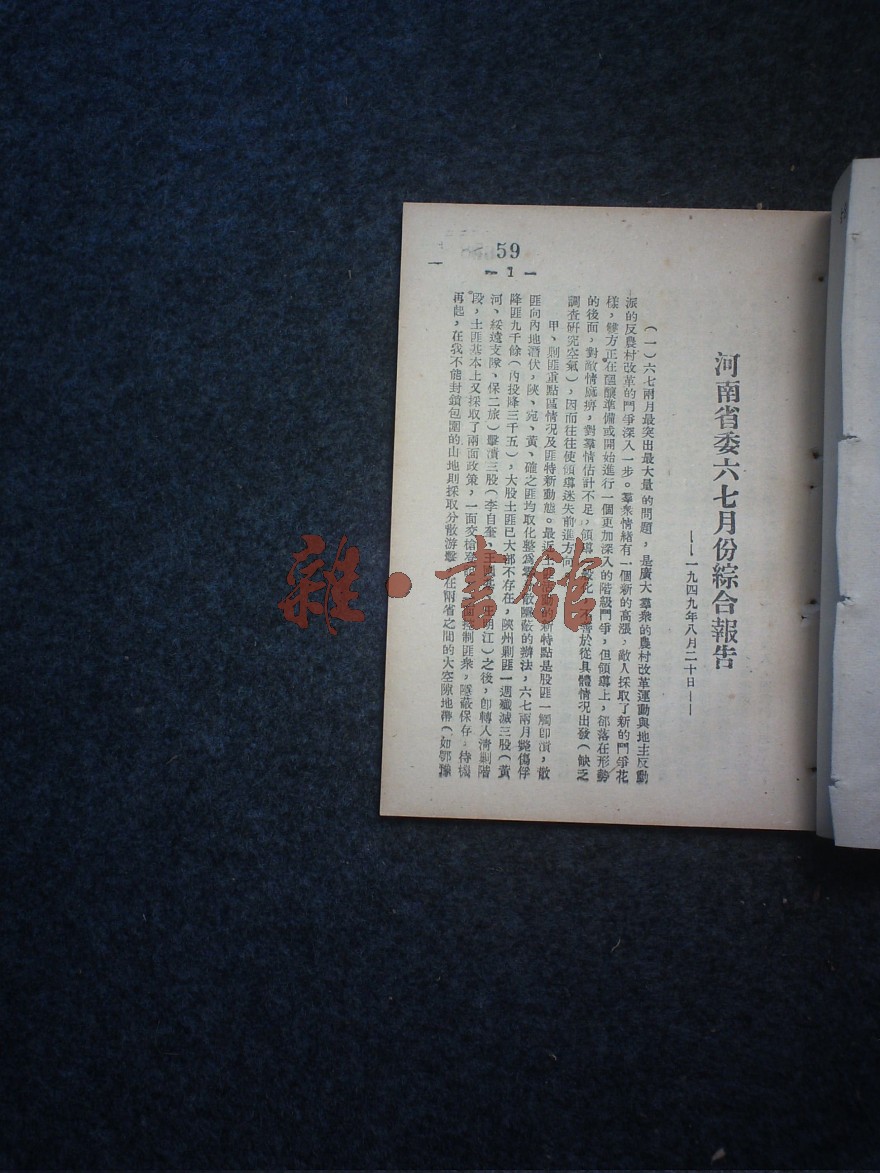 河南省委六七月份綜合報告
——一九四九年八月二十日——
（一）六七兩月最突出最大量的問題，是廣大羣衆的農村改革運動與地主反動
派的反農村改革的鬥爭深入一步。羣衆情緒有一個新的高漲，敵人採取了新的鬥爭花
樣，雙方正在醞釀準備或開始進行一個更加深入的階級鬥爭，但領導上，部落在形勢
的後面，對敵情麻痹，對羣情估計不足，領導一般化，不善於從具體情況出發（缺乏
調查研究空氣），因而往往使領導迷失前進方向。
甲、剿匪重點區情況及匪特新動態。最近土匪活動的新特點是股匪一觸即潰，散
匪向內地潛伏，陝、宛、黃、確之匪均取化整爲零分散隱蔽的辦法，六七兩月斃傷俘
降匪九千餘（內投降三千五），大股土匪已大部不存在，陝州剿匪一週殲滅三股（黃
河、綏遠支隊、保二旅）擊潰三股（李自奎，王明江）之後，卽轉入清剿階
段，土匪基本上又採取了兩面政策，一面交槍控制匪衆，隱蔽保存，待機
再起，在我不能封鎖包圍的山地則採取分散游擊，在兩省之間的大空隙地帶（如鄂豫
59
—1—
雜·書館